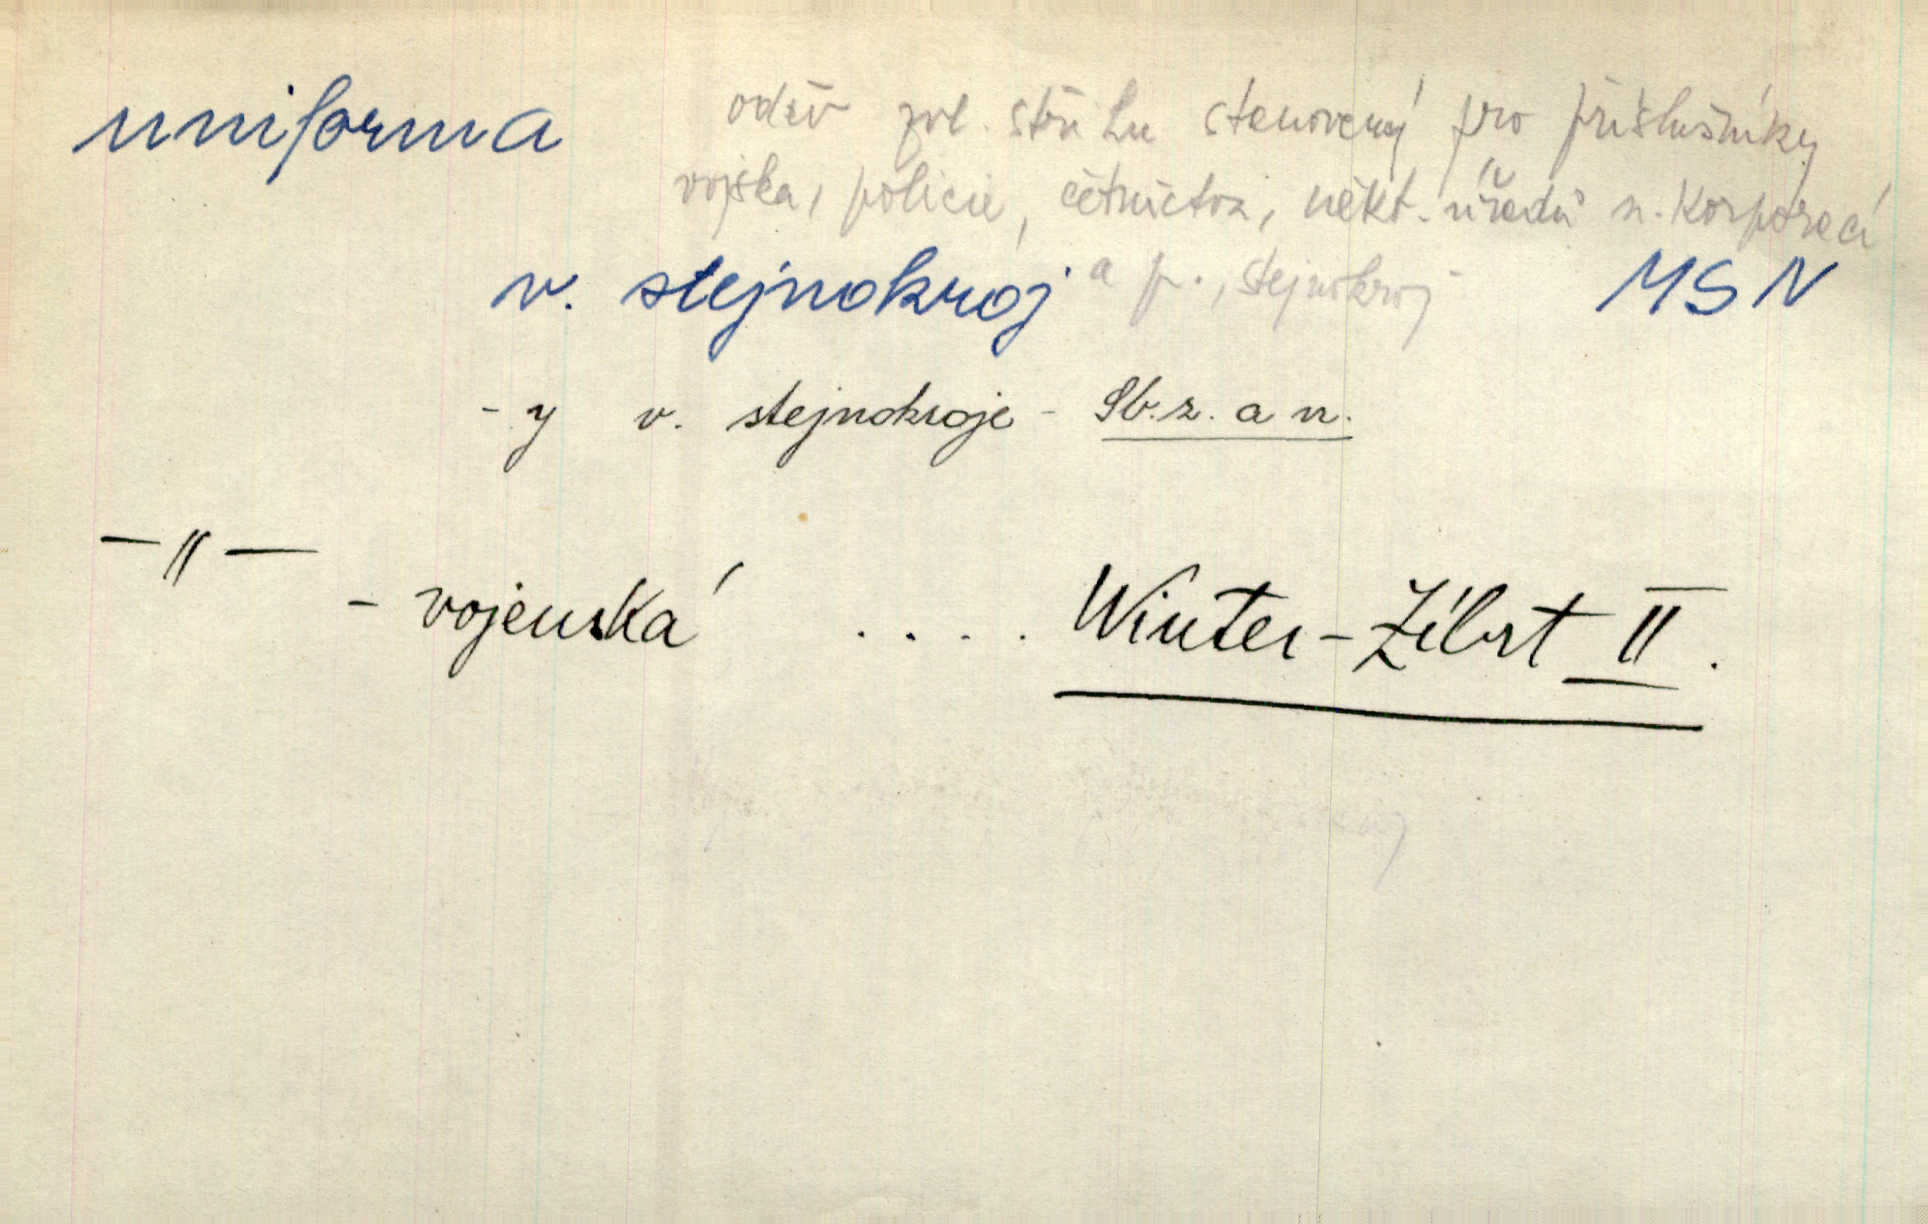 uniforma oděv zvl. střihu stanovený pro příslušníky
vojska, policie, četnictva, někt. úřadů n. korporací
v. stejnokroj a p., stejnokroj MSN
- y v. stejnokroje - Sb. z. a n.
—〃 —
- vojenská .... Winter-Zíbrt II.